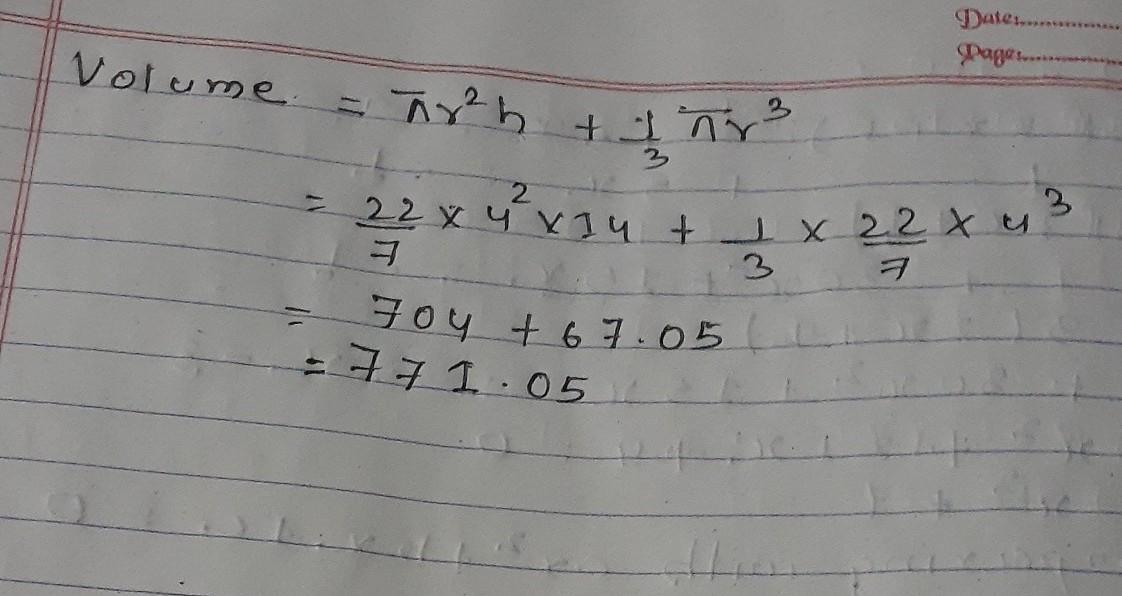 Date:..................
Page:..................
Volume = πr²h + 1/3 πr³
= 22/7 × 4² × 14 + 1/3 × 22/7 × 4³
= 704 + 67.05
= 771.05